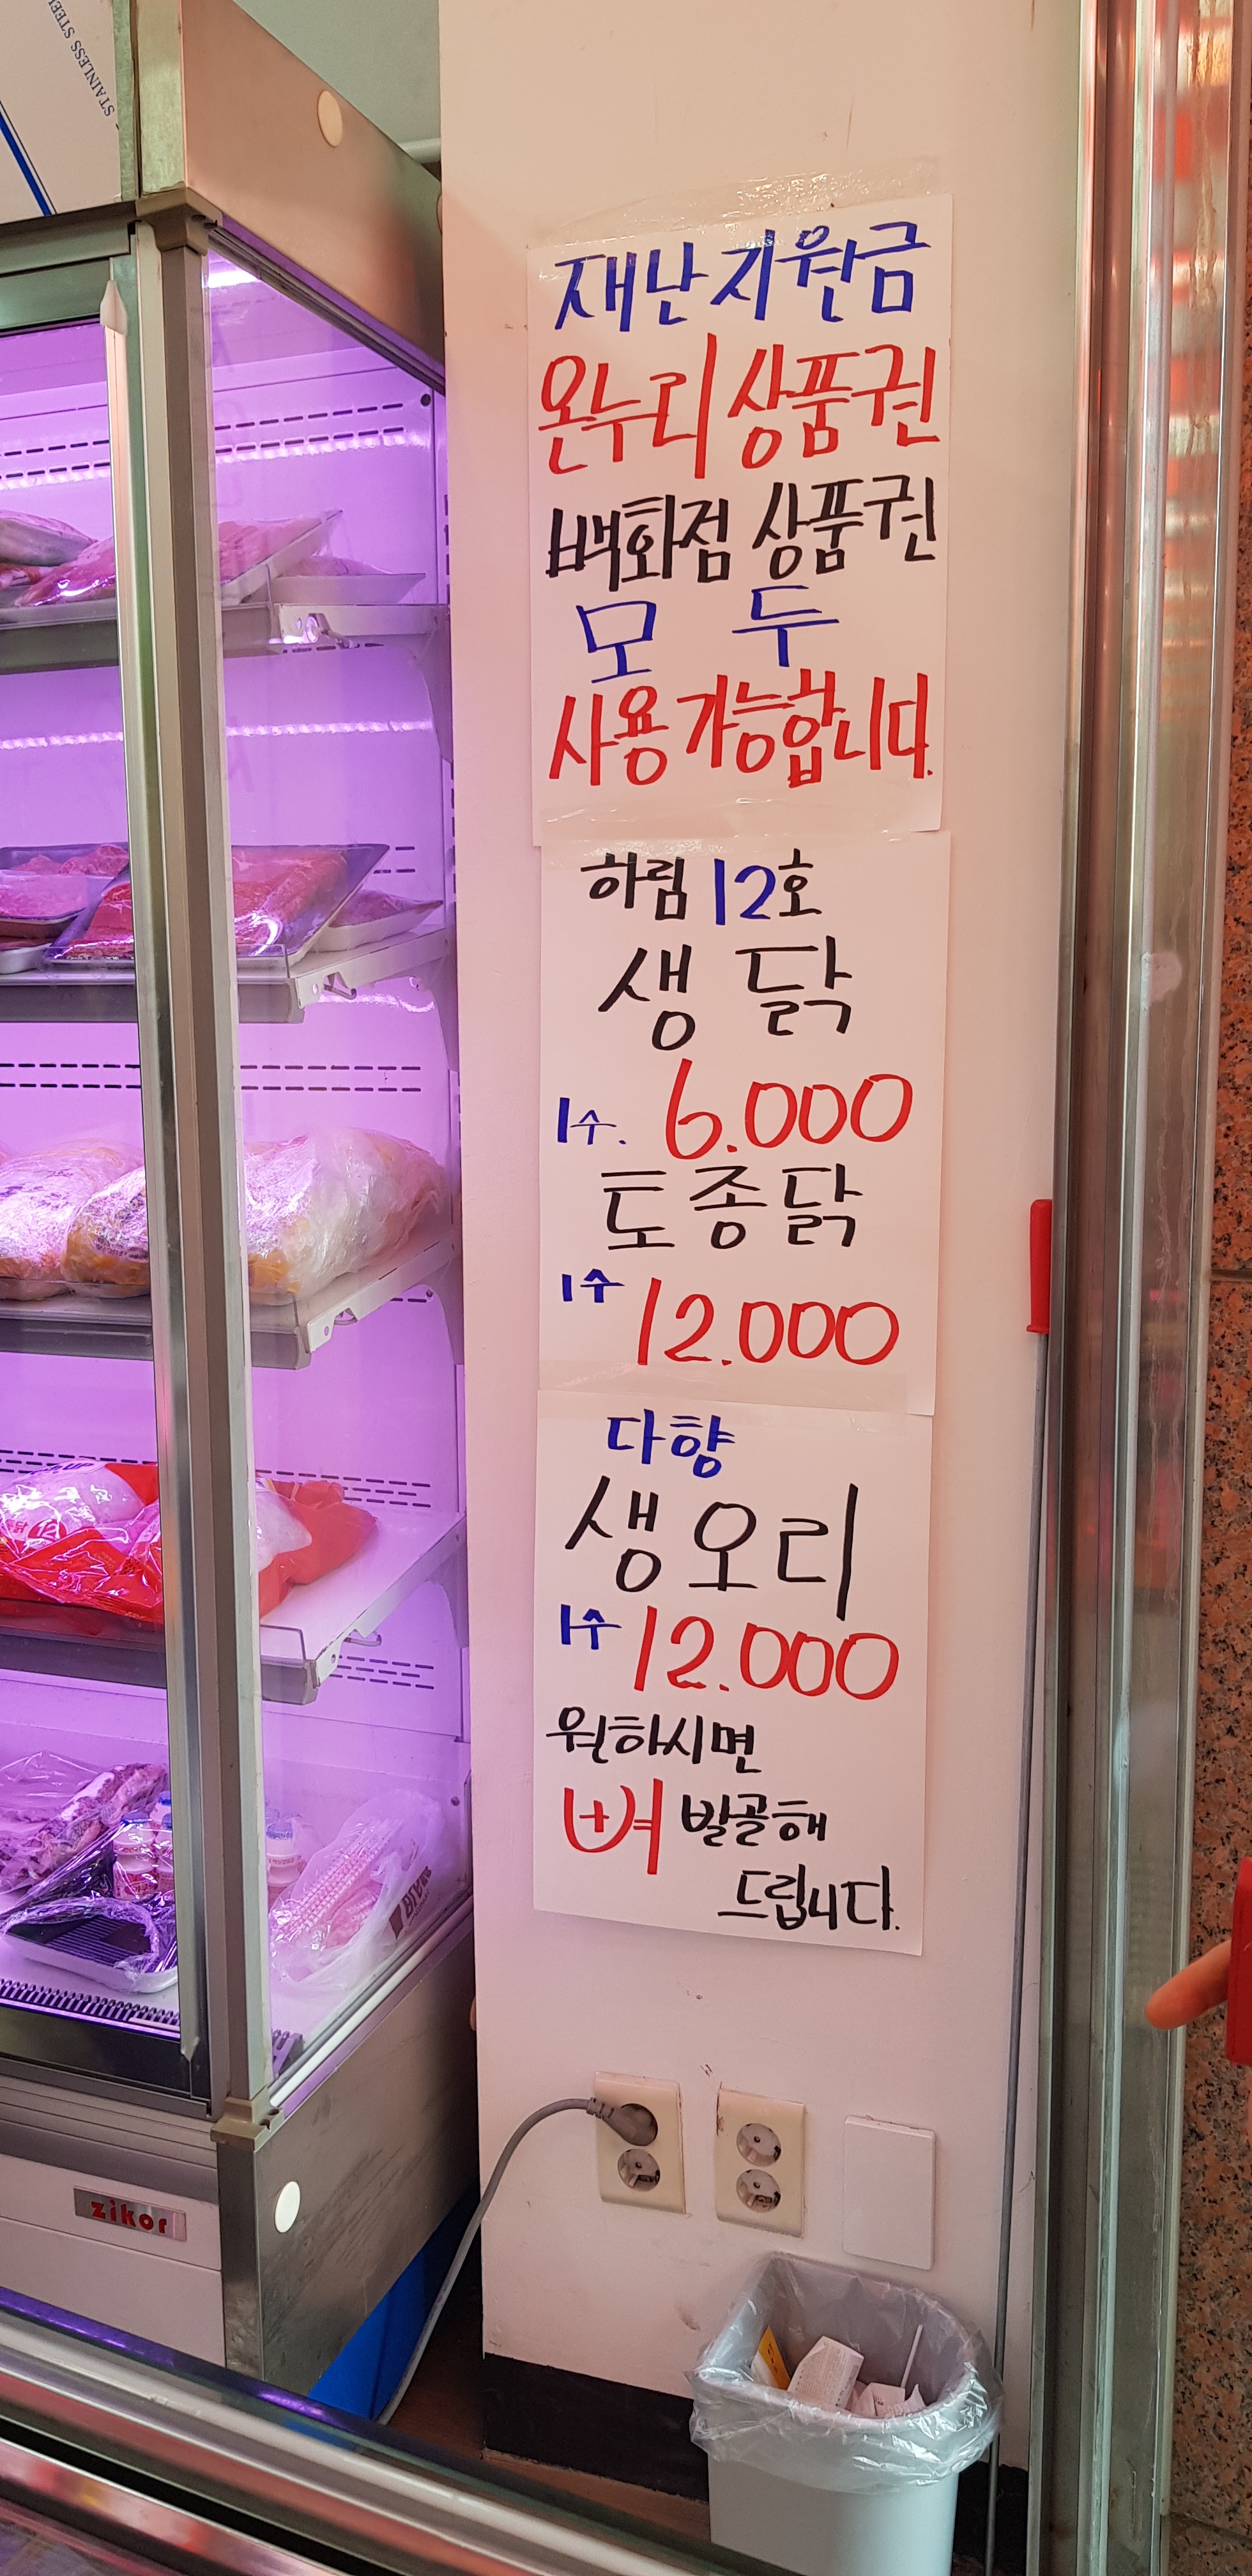 STAINLESS STEE
재난지원금
온누리상품권
백화점 상품권
모 두
사용가능합니다.
하림 12호
생 닭
1수. 6.000
토종닭
1수 12.000
다향
생오리
1수 12.000
원하시면
뼈 발골해
드립니다.
zikor